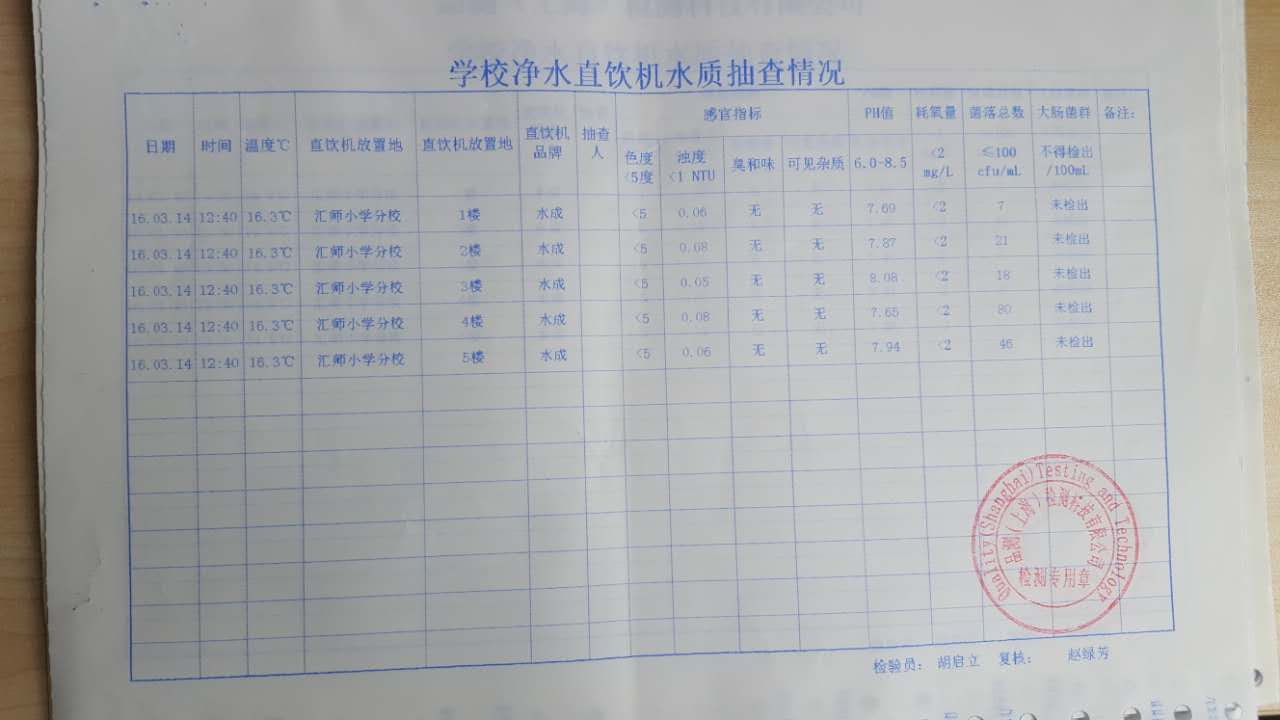 学校净水直饮机水质抽查情况
日期 时间 温度℃ 直饮机放置地 直饮机放置地 直饮机品牌 抽查人 感官指标 PH值 耗氧量 菌落总数 大肠菌群 备注:
色度<5度 浊度<1 NTU 臭和味 可见杂质 6.0-8.5 <2 mg/L ≤100 cfu/mL 不得检出/100mL
16.03.14 12:40 16.3℃ 汇师小学分校 1楼 水成 <5 0.06 无 无 7.69 <2 7 未检出
16.03.14 12:40 16.3℃ 汇师小学分校 2楼 水成 <5 0.08 无 无 7.87 <2 21 未检出
16.03.14 12:40 16.3℃ 汇师小学分校 3楼 水成 <5 0.05 无 无 8.08 <2 18 未检出
16.03.14 12:40 16.3℃ 汇师小学分校 4楼 水成 <5 0.08 无 无 7.65 <2 80 未检出
16.03.14 12:40 16.3℃ 汇师小学分校 5楼 水成 <5 0.06 无 无 7.94 <2 46 未检出
Quality(Shanghai)Testing and Technology
品测（上海）检测科技有限公司
检测专用章
检验员： 胡启立 复核： 赵绿芳